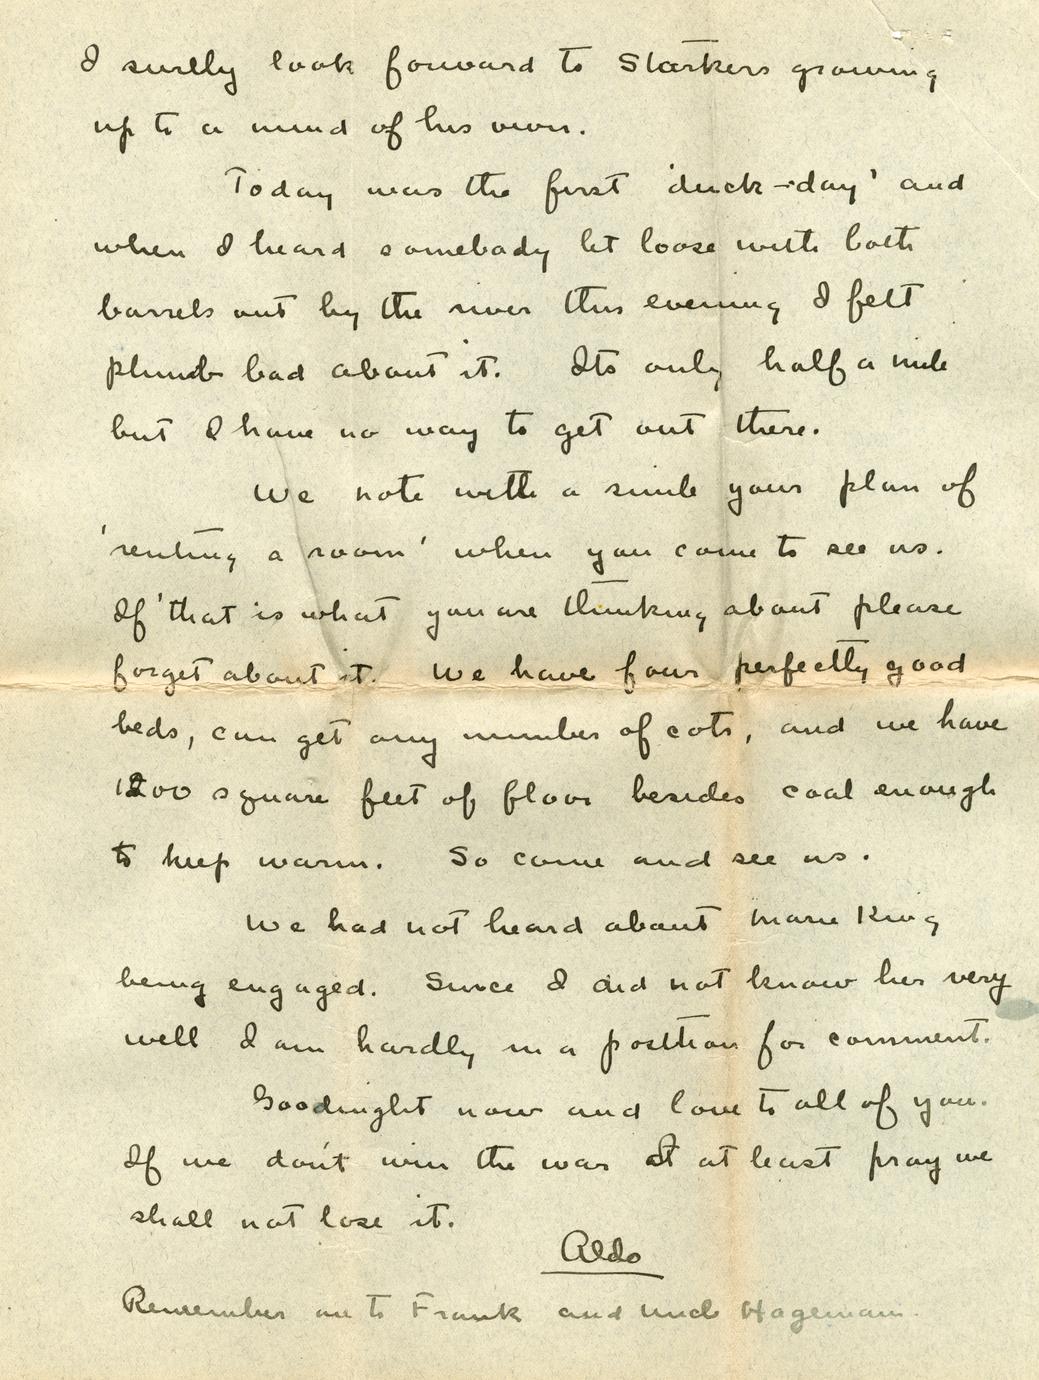 I surely look forward to Starkers growing
up to a mind of his own.
Today was the first 'duck-day' and
when I heard somebody let loose with both
barrels out by the river this evening I felt
plumb bad about it. Its only half a mile
but I have no way to get out there.
We note with a smile your plan of
'renting a room' when you come to see us.
If that is what you are thinking about please
forget about it. We have four perfectly good
beds, can get any number of cots, and we have
1200 square feet of floor besides coal enough
to keep warm. So come and see us.
We had not heard about Marie King
being engaged. Since I did not know her very
well I am hardly in a position for comment.
Goodnight now and love to all of you.
If we don't win the war I at least pray we
shall not lose it.
Aldo
Remember me to Frank and Uncle Hagemann.